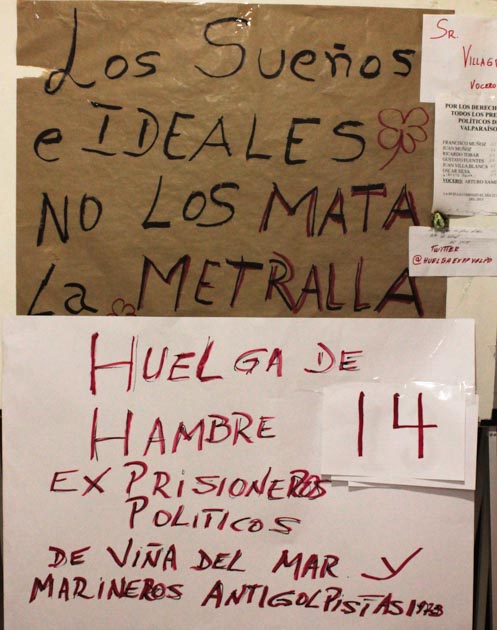 Los Sueños
e IDEALES
NO LOS MATA
La METRALLA
SR.
VILLAG
VOCERO
POR LOS DERECH
TODOS LOS PRE
POLÍTICOS D
VALPARAÍSO
FRANCISCO MUÑOZ
JUAN MUÑOZ
RICARDO TOBAR
GUSTAVO FUENTES
JUAN VILLABLANCA
OSCAR SILVA
TWITTER
@HUELGAEXPPVALPO
HUELGA DE
HAMBRE
14
EX PRISIONEROS
POLITICOS
DE VIÑA DEL MAR Y
MARINEROS ANTIGOLPISTAS 1973